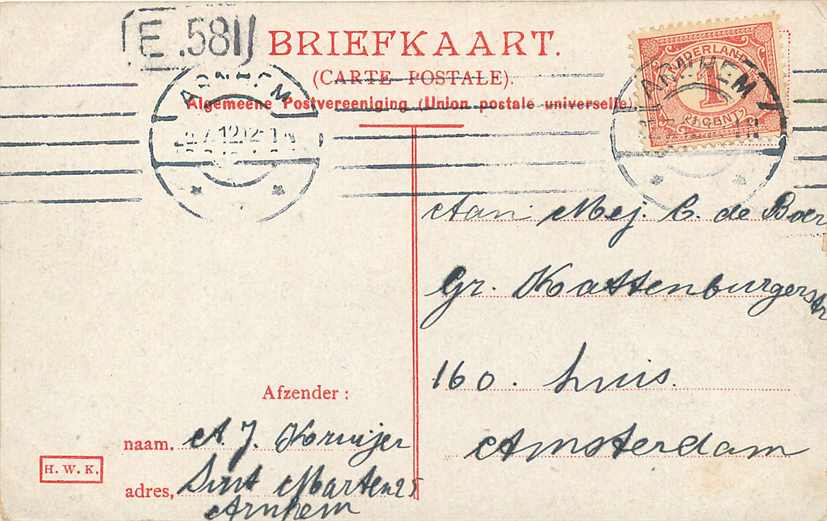 E .581
BRIEFKAART.
(CARTE POSTALE).
Algemeene Postvereeniging (Union postale universelle)
ARNHEM
2.7.12 12-1 N
ARNHEM
NEDERLAND
1
CENT
Aan Mej. C. de Boer
Gr. Kattenburgerstr
160. huis.
Amsterdam
Afzender :
naam, A. J. Kruijer
adres, Sint Marten 25
Arnhem
H. W. K.